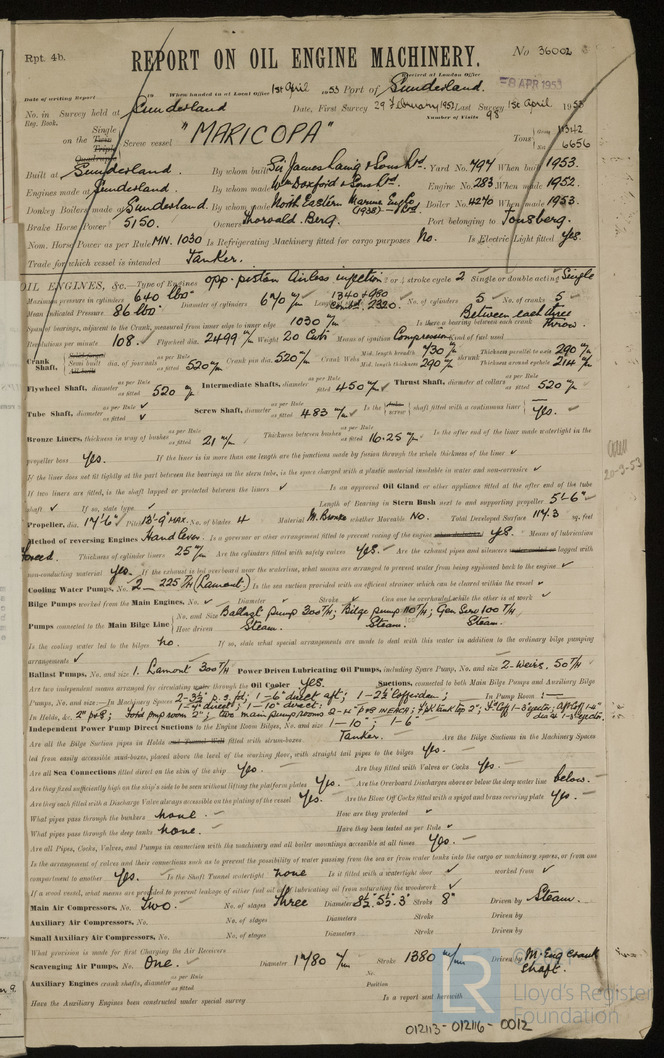 Rpt. 4b.
REPORT ON OIL ENGINE MACHINERY.
No 36002
Received at London Office
-8 APR 1953
Date of writing Report When handed in at Local Office 1st April 1953 Port of Sunderland.
No. in Survey held at Sunderland Date, First Survey 29 February 1952 Last Survey 1st April 1953
Reg. Book. Number of Visits 98
Single
on the Twin Screw vessel "MARICOPA" Tons Gross 11342
Triple
Quadruple Net 6656
Built at Sunderland. By whom built Sir James Laing & Sons Ltd. Yard No. 797 When built 1953.
Engines made at Sunderland. By whom made Wm Doxford & Sons Ltd. Engine No. 283 When made 1952.
Donkey Boilers made at Sunderland. By whom made North Eastern Marine Eng Co (1938) Ltd. Boiler No. 4270 When made 1953.
Brake Horse Power 5150. Owners Thorvald Berg. Port belonging to Tonsberg.
Nom. Horse Power as per Rule MN. 1030 Is Refrigerating Machinery fitted for cargo purposes No. Is Electric Light fitted Yes.
Trade for which vessel is intended Tanker.
OIL ENGINES, &c. Type of Engines opp. piston Airless injection 2 or 4 stroke cycle 2 Single or double acting Single
Maximum pressure in cylinders 640 lbs Diameter of cylinders 670 m/m 1340 + 980 2320. No. of cylinders 5 No. of cranks 5
Mean Indicated Pressure 86 lbs
Span of bearings, adjacent to the Crank, measured from inner edge to inner edge 1030 m/m Is there a bearing between each crank Between each three throw.
Revolutions per minute 108. Flywheel dia. 2499 m/m Weight 20 Cwts Means of ignition Compression Kind of fuel used
Crank Shaft, dia. of journals as per Rule as fitted 520 m/m Crank pin dia. 520 m/m Crank Webs Mid. length breadth 730 m/m Mid. length thickness 290 m/m shrunk Thickness parallel to axis 290 m/m Thickness around eyehole 214 m/m
Flywheel Shaft, diameter as per Rule as fitted 520 m/m Intermediate Shafts, diameter as per Rule as fitted 450 m/m Thrust Shaft, diameter at collars as per Rule as fitted 520 m/m
Tube Shaft, diameter as per Rule as fitted Screw Shaft, diameter as per Rule as fitted 483 m/m Is the shaft fitted with a continuous liner Yes.
Bronze Liners, thickness in way of bushes as per Rule as fitted 21 m/m Thickness between bushes as per Rule as fitted 16.25 m/m Is the after end of the liner made watertight in the
propeller boss Yes. If the liner is in more than one length are the junctions made by fusion through the whole thickness of the liner
If the liner does not fit tightly at the part between the bearings in the stern tube, is the space charged with a plastic material insoluble in water and non-corrosive
If two liners are fitted, is the shaft lapped or protected between the liners Is an approved Oil Gland or other appliance fitted at the after end of the tube
shaft If so, state type Length of Bearing in Stern Bush next to and supporting propeller 5'-6"
Propeller, dia. 17'-6" Pitch 13'-9" MAX. No. of blades 4 Material M. Bronze whether Moveable No. Total Developed Surface 114.3 sq. feet
Method of reversing Engines Hand lever Is a governor or other arrangement fitted to prevent racing of the engine Yes. Means of lubrication
forced. Thickness of cylinder liners 25 m/m Are the cylinders fitted with safety valves Yes. Are the exhaust pipes and silencers lagged with
non-conducting material Yes. If the exhaust is led overboard near the waterline, what means are arranged to prevent water from being syphoned back to the engine
Cooling Water Pumps, No. 2 - 225 T/H (Lamont.) Is the sea suction provided with an efficient strainer which can be cleared within the vessel
Bilge Pumps worked from the Main Engines, No. Diameter Stroke Can one be overhauled while the other is at work
Pumps connected to the Main Bilge Line No. and Size Ballast pump 300 T/H; Bilge pump 110 T/H; Gen Serv 100 T/H
How driven Steam. Steam. Steam.
Is the cooling water led to the bilges No. If so, state what special arrangements are made to deal with this water in addition to the ordinary bilge pumping
arrangements
Ballast Pumps, No. and size 1. Lamont 300 T/H Power Driven Lubricating Oil Pumps, including Spare Pump, No. and size 2 - Weirs. 50 T/H
Are two independent means arranged for circulating water through the Oil Cooler Yes. Suctions, connected to both Main Bilge Pumps and Auxiliary Bilge
Pumps, No. and size:—In Machinery Spaces 2-3½" p.s. fd; 1-6" direct aft; 1-2½" Cofferdam; In Pump Room 1—
Independent Power Pump Direct Suctions to the Engine Room Bilges, No. and size 1-10"; 1-6"
Are all the Bilge Suction pipes in Holds fitted with strum-boxes Tanker. Are the Bilge Suctions in the Machinery Spaces
led from easily accessible mud-boxes, placed above the level of the working floor, with straight tail pipes to the bilges Yes.
Are all Sea Connections fitted direct on the skin of the ship Yes. Are they fitted with Valves or Cocks Yes.
Are they fixed sufficiently high on the ship's side to be seen without lifting the platform plates Yes. Are the Overboard Discharges above or below the deep water line below.
Are they each fitted with a Discharge Valve always accessible on the plating of the vessel Yes. Are the Blow Off Cocks fitted with a spigot and brass covering plate Yes.
What pipes pass through the bunkers None. How are they protected
What pipes pass through the deep tanks None. Have they been tested as per Rule
Are all Pipes, Cocks, Valves, and Pumps in connection with the machinery and all boiler mountings accessible at all times Yes.
Is the arrangement of valves and their connections such as to prevent the possibility of water passing from the sea or from water tanks into the cargo or machinery spaces, or from one
compartment to another Yes. Is the Shaft Tunnel watertight None Is it fitted with a watertight door worked from
If a wood vessel, what means are provided to prevent leakage of either fuel oil or lubricating oil from saturating the woodwork
Main Air Compressors, No. Two. No. of stages Three Diameters 8½". 5½". 3" Stroke 8" Driven by Steam.
Auxiliary Air Compressors, No. No. of stages Diameters Stroke Driven by
Small Auxiliary Air Compressors, No. No. of stages Diameters Stroke Driven by
What provision is made for first Charging the Air Receivers
Scavenging Air Pumps, No. One. Diameter 1780 m/m Stroke 1380 m/m Driven by M. Eng crank shaft.
Auxiliary Engines crank shafts, diameter as per Rule as fitted No. Position
Have the Auxiliary Engines been constructed under special survey Is a report sent herewith
20-3-53
LR
Lloyd's Register
Foundation
012113-012116-0012